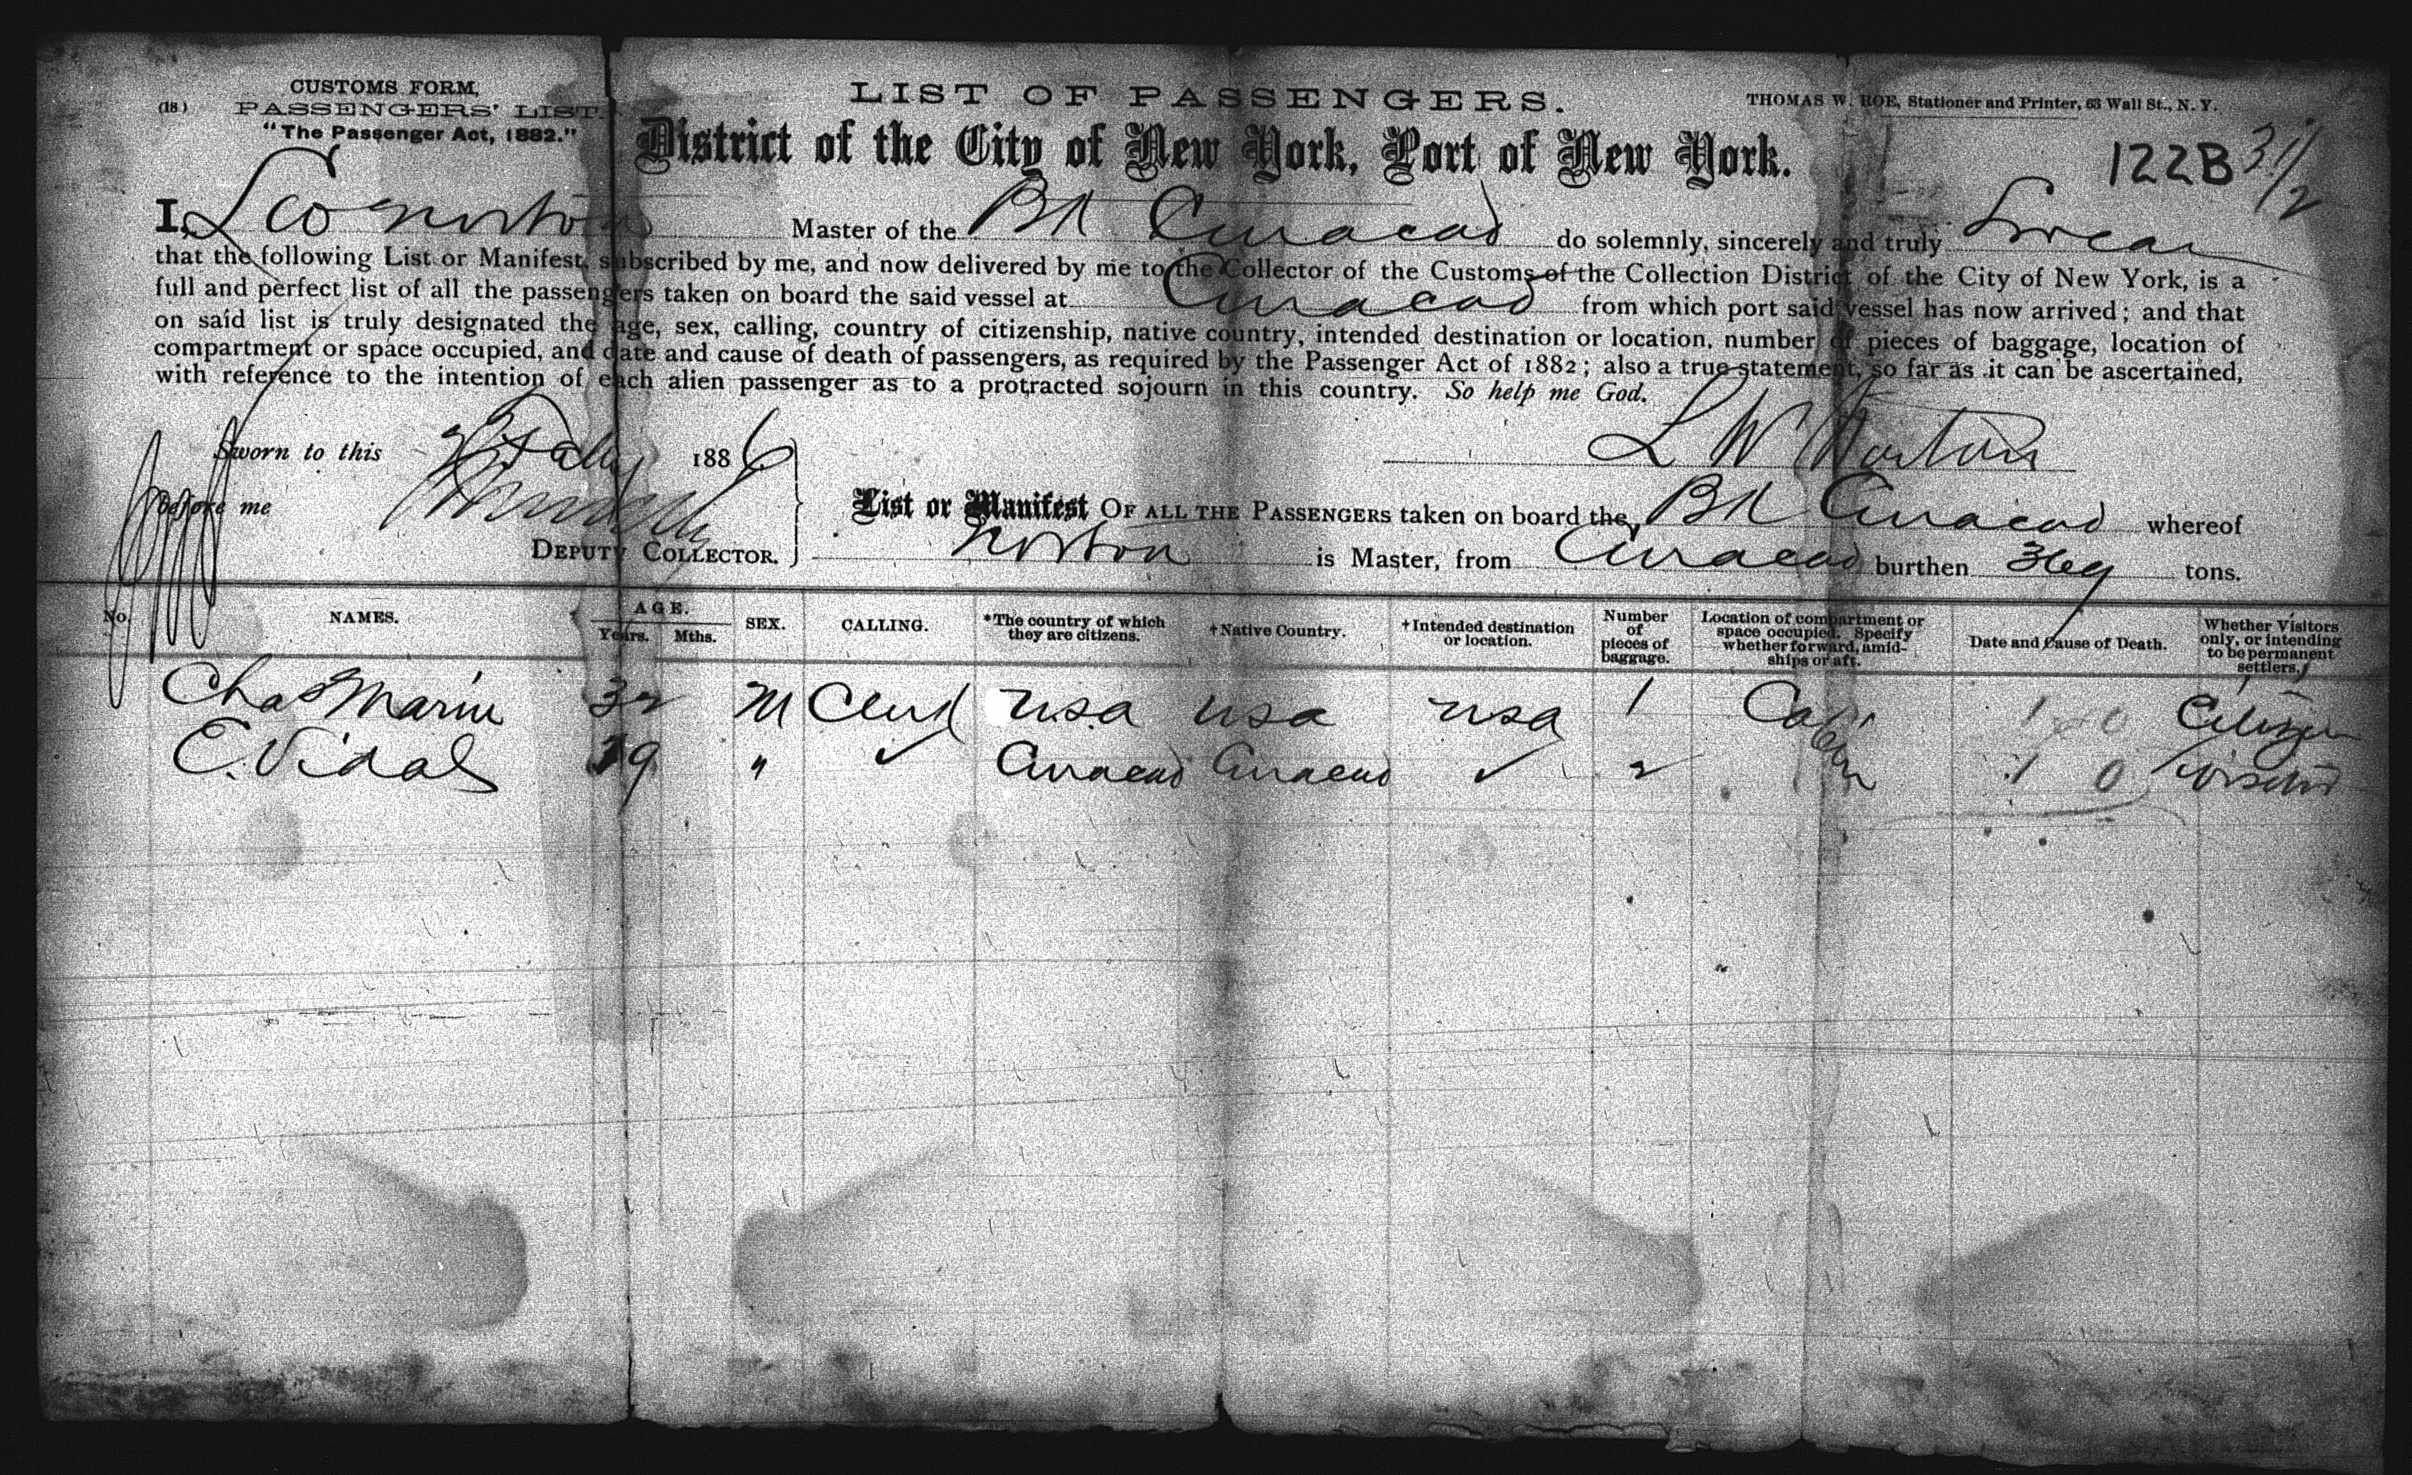 CUSTOMS FORM,
(18) PASSENGERS' LIST.
"The Passenger Act, 1882."
LIST OF PASSENGERS.
THOMAS W. ROE, Stationer and Printer, 63 Wall St., N. Y.
District of the City of New York, Port of New York.
122B
I, L W Norton Master of the Bk Curacao do solemnly, sincerely and truly Swear
that the following List or Manifest, subscribed by me, and now delivered by me to the Collector of the Customs of the Collection District of the City of New York, is a
full and perfect list of all the passengers taken on board the said vessel at Curacao from which port said vessel has now arrived; and that
on said list is truly designated the age, sex, calling, country of citizenship, native country, intended destination or location, number of pieces of baggage, location of
compartment or space occupied, and date and cause of death of passengers, as required by the Passenger Act of 1882; also a true statement, so far as it can be ascertained,
with reference to the intention of each alien passenger as to a protracted sojourn in this country. So help me God.
L W Norton
Sworn to this 1886
before me
DEPUTY COLLECTOR.
List or Manifest OF ALL THE PASSENGERS taken on board the Bk Curacao whereof
Norton is Master, from Curacao burthen 369 tons.
No. NAMES. AGE. Years. Mths. SEX. CALLING. *The country of which they are citizens. †Native Country. †Intended destination or location. Number of pieces of baggage. Location of compartment or space occupied. Specify whether forward, amidships or aft. Date and Cause of Death. Whether Visitors only, or intending to be permanent settlers.
Chas Marin 32 M Clerk USA USA USA 1 Cabin 1 0 Citizen
E. Vidal 19 " ✓ Curacao Curacao ✓ 2 1 0 Visitor